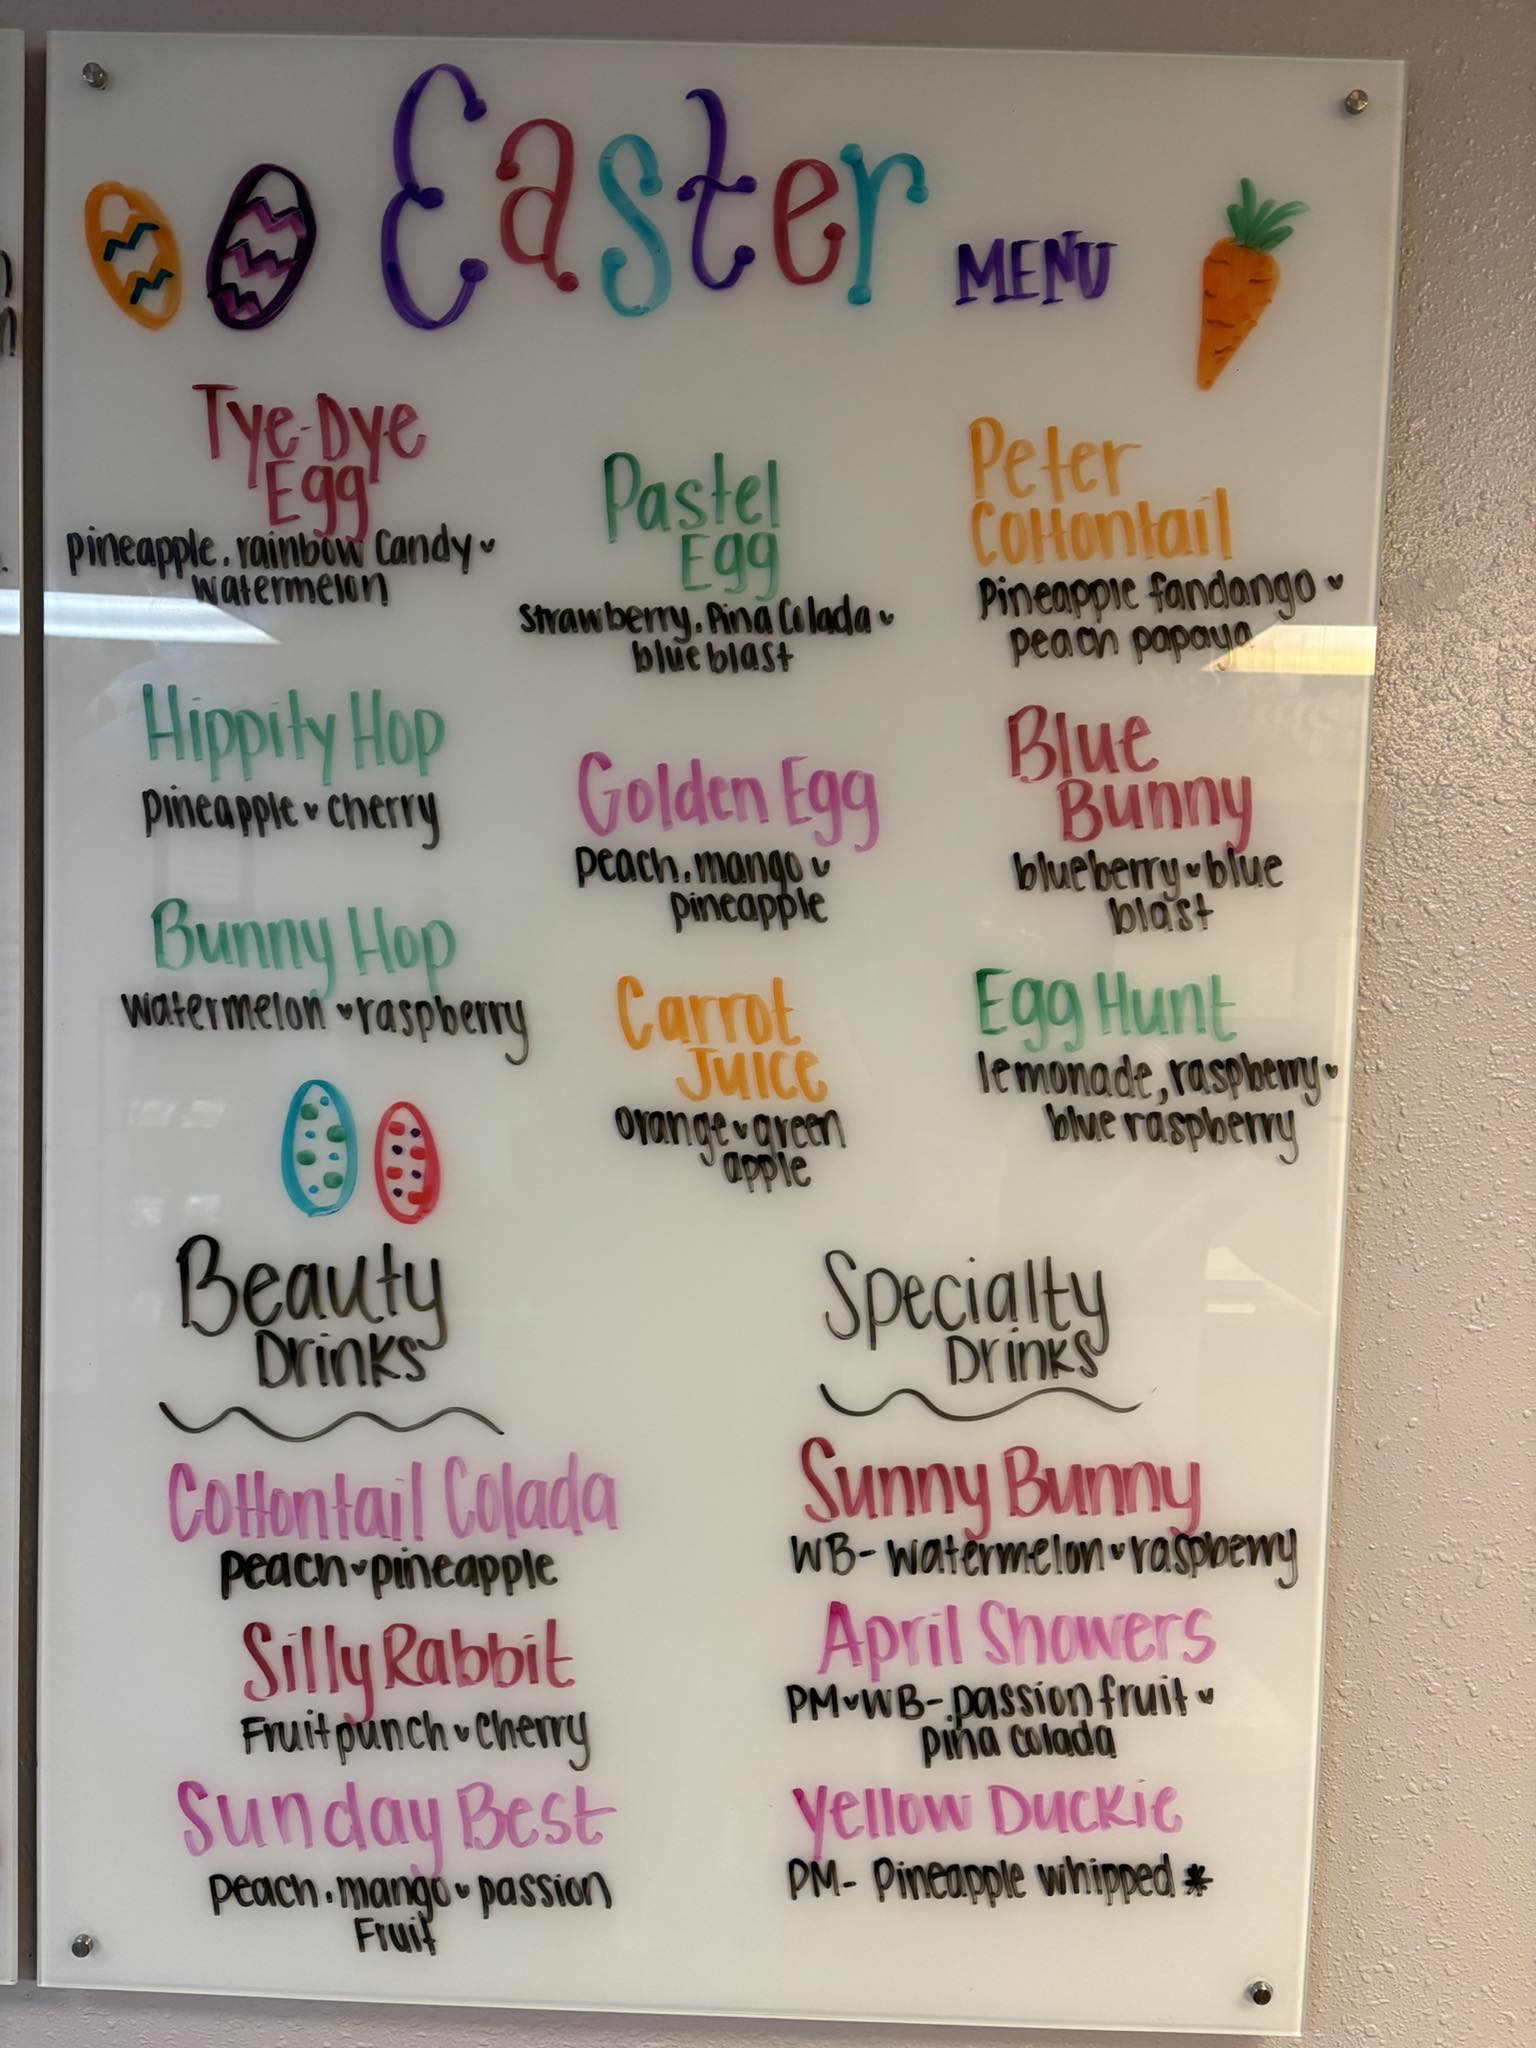 Easter MENU
Tye-Dye
Egg
pineapple, rainbow candy ♥
watermelon
Pastel
Egg
strawberry, Pina Colada ♥
blue blast
Peter
Cottontail
Pineapple fandango ♥
peach papaya
Hippity Hop
pineapple ♥ cherry
Golden Egg
peach, mango ♥
pineapple
Blue
Bunny
blueberry ♥ blue
blast
Bunny Hop
watermelon ♥ raspberry
Carrot
Juice
orange ♥ green
apple
Egg Hunt
lemonade, raspberry ♥
blue raspberry
Beauty
Drinks
Cottontail Colada
Peach ♥ pineapple
Silly Rabbit
Fruit punch ♥ cherry
Sunday Best
peach, mango ♥ passion
Fruit
Specialty
Drinks
Sunny Bunny
WB- watermelon ♥ raspberry
April Showers
PM ♥ WB- passion fruit ♥
pina colada
Yellow Duckie
PM- Pineapple whipped *